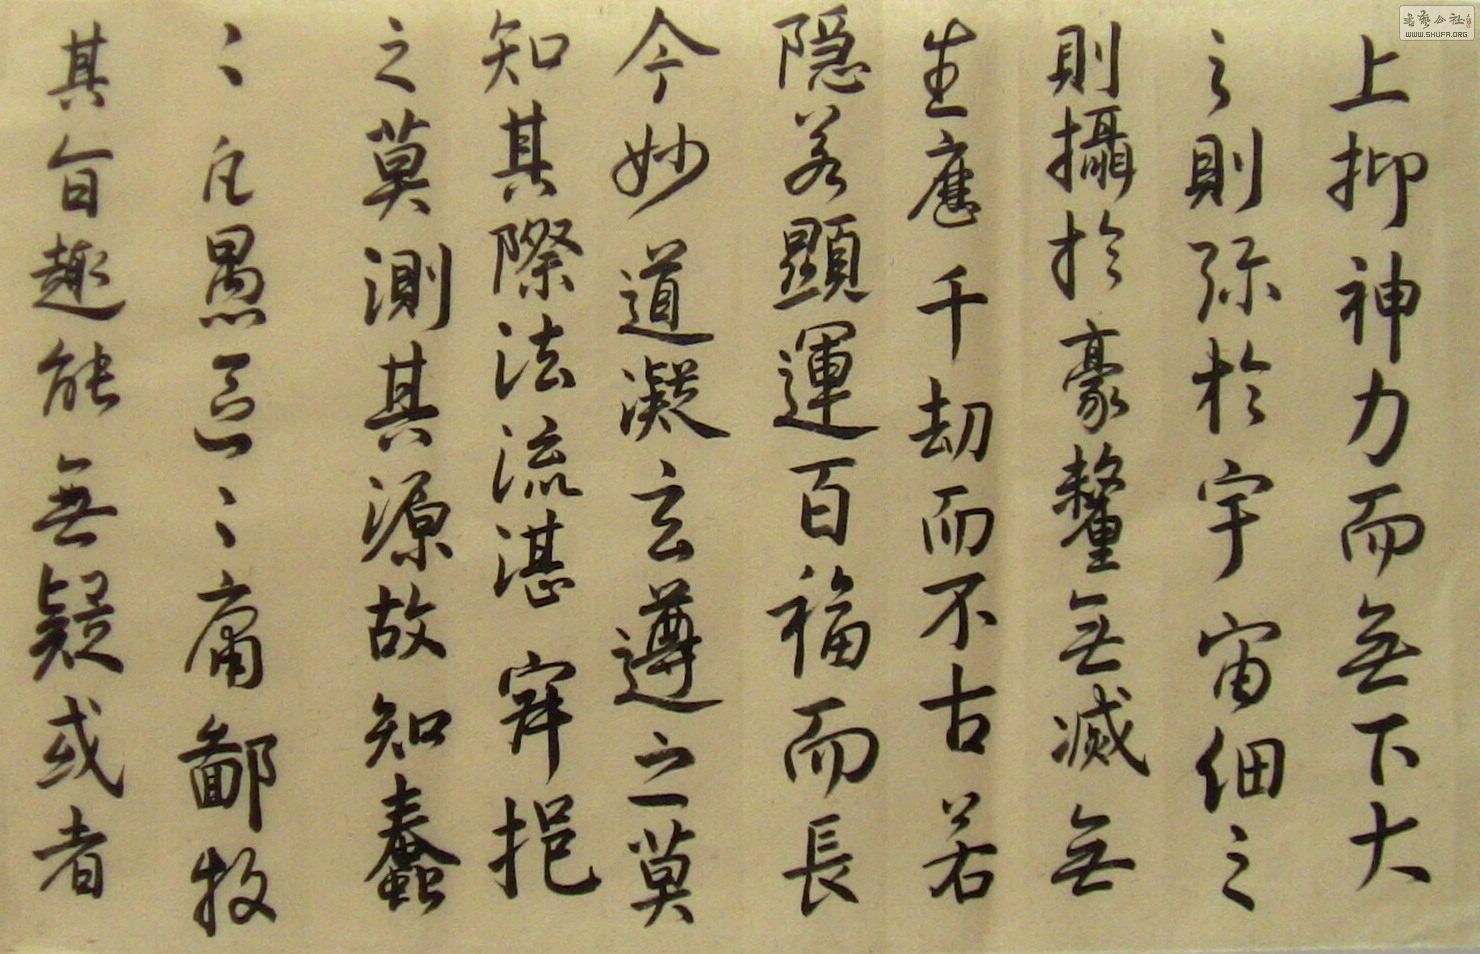 上抑神力而無下大
之則弥於宇宙細之
則攝於豪釐無滅無
生歷千劫而不古若
隠若顯運百福而長
今妙道凝玄遵之莫
知其際法流湛寂挹
之莫測其源故知蠢
〻凡愚區〻庸鄙投
其旨趣能無疑或者
书艺公社
WWW.SHUFA.ORG